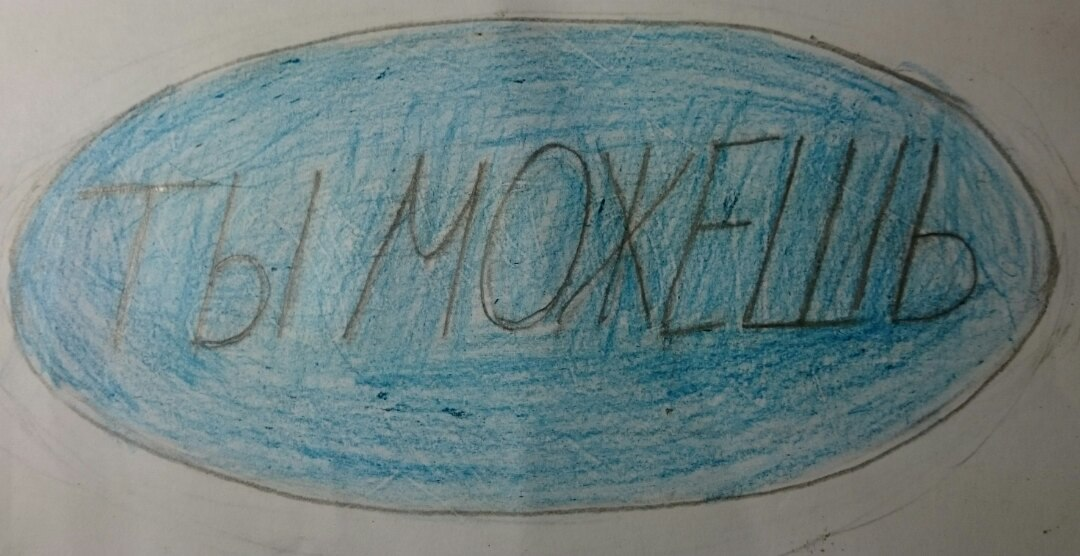 ТЫ МОЖЕШЬ